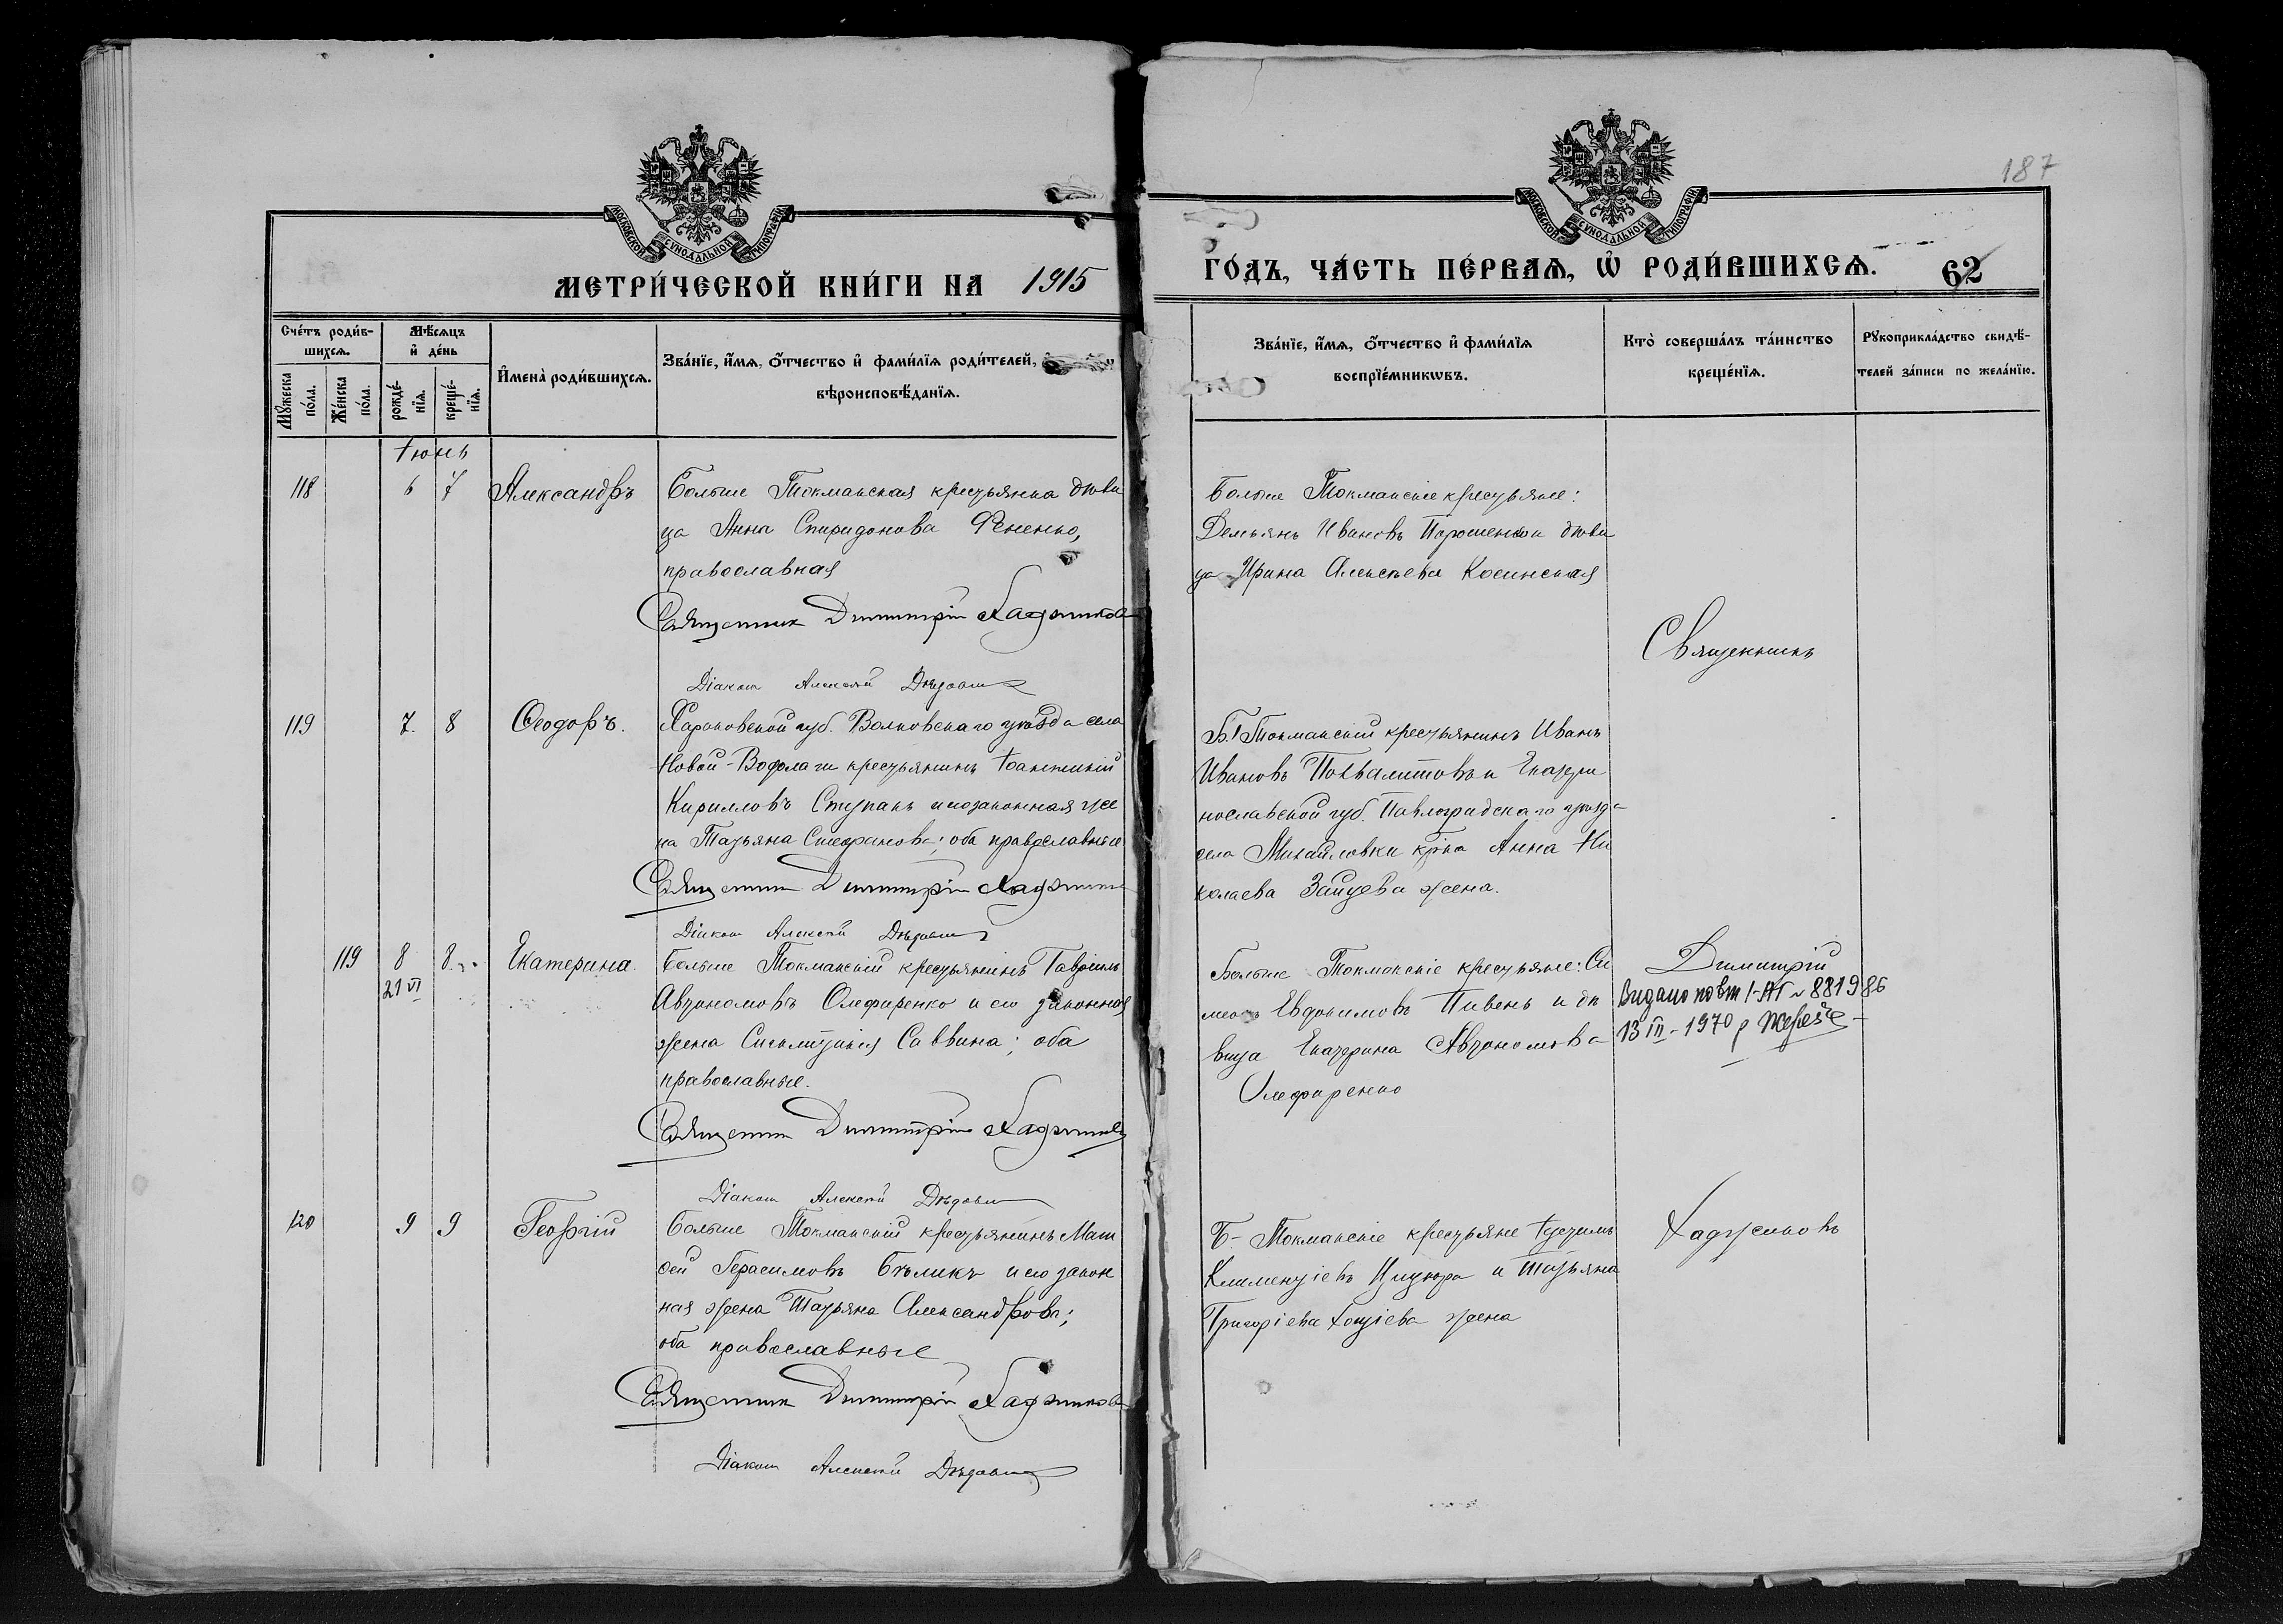 187
МОСКОВСКОЙ СѴНОДАЛЬНОЙ ТИПОГРАФІИ
МЕТРИ́ЧЕСКОЙ КНИ́ГИ НА 1915
МОСКОВСКОЙ СѴНОДАЛЬНОЙ ТИПОГРАФІИ
ГО́ДЪ, ЧА́СТЬ ПЕ́РВАѦ, Ѡ҆ РОДИ́ВШИХСѦ. 62
Сче́тъ роди́в-
шихсѧ.
Мѣ́сѧцъ
и҆ де́нь
Мꙋ́жеска по́ла.
Же́нска по́ла.
рожде́-
нїѧ.
креще́-
нїѧ.
И҆мена̀ роди́вшихсѧ.
Зва́нїе, и҆́мѧ, о҆́тчество и҆ фами́лїѧ роди́телей,
вѣроисповѣ́данїѧ.
Зва́нїе, и҆́мѧ, о҆́тчество и҆ фами́лїѧ
воспрїе́мникѡвъ.
Кто̀ соверша́лъ та́инство
креще́нїѧ.
Рꙋкоприкла́дство свидѣ́-
телей за́писи по жела́нїю.
Іюнь
118 6 7 Александръ
Больше Токмакская крестьянка дѣви
ца Анна Спиридонова Фененко,
православная
Священник Димитрій Хаджинов
Діакон Алексѣй
Больше Токмакскіе крестьяне:
Демьянъ Ивановъ Порошенко и дѣви
ца Ирина Алексѣева Косинская
Священникъ
119 7. 8 Ѳеодоръ.
Харьковской губ. Валковскаго уѣзда села
Новой-Водолаги крестьянинъ Іоанникій
Кирилловъ Ступакъ и его законная же
на Татьяна Стефанова; оба православные
Священник Димитрій Хаджинов
Діакон Алексѣй
Б. Токмакскій крестьянинъ Иванъ
Ивановъ Похвалитовъ и Екатери
нославской губ. Павлоградскаго уѣзда
села Михайловки кр-ка Анна Ни
колаева Зайцева жена.
119 8 8 Екатерина.
21 VI
Больше Токмакскій крестьянинъ Гавріилъ
Автономовъ Олефиренко и его законная
жена Сикли­тикія Саввина; оба
православные.
Священник Димитрій Хаджинов
Діакон Алексѣй
Больше Токмакскіе крестьяне: Си
меонъ Евдокимовъ Пивень и дѣ
вица Екатерина Автономова
Олефиренко
Димитрій
Видано повт I-АП № 881986
13 III - 1970 р
120 9 9 Георгій
Больше Токмакскій крестьянинъ Мат
ѳей Герасимовъ Бѣликъ и его закон
ная жена Татьяна Александрова;
оба православные
Священник Димитрій Хаджинов
Діакон Алексѣй
Б- Токмакскіе крестьяне Іустинъ
Климентіевъ Цицюра и Татьяна
Григоріева жена
Хаджиновъ